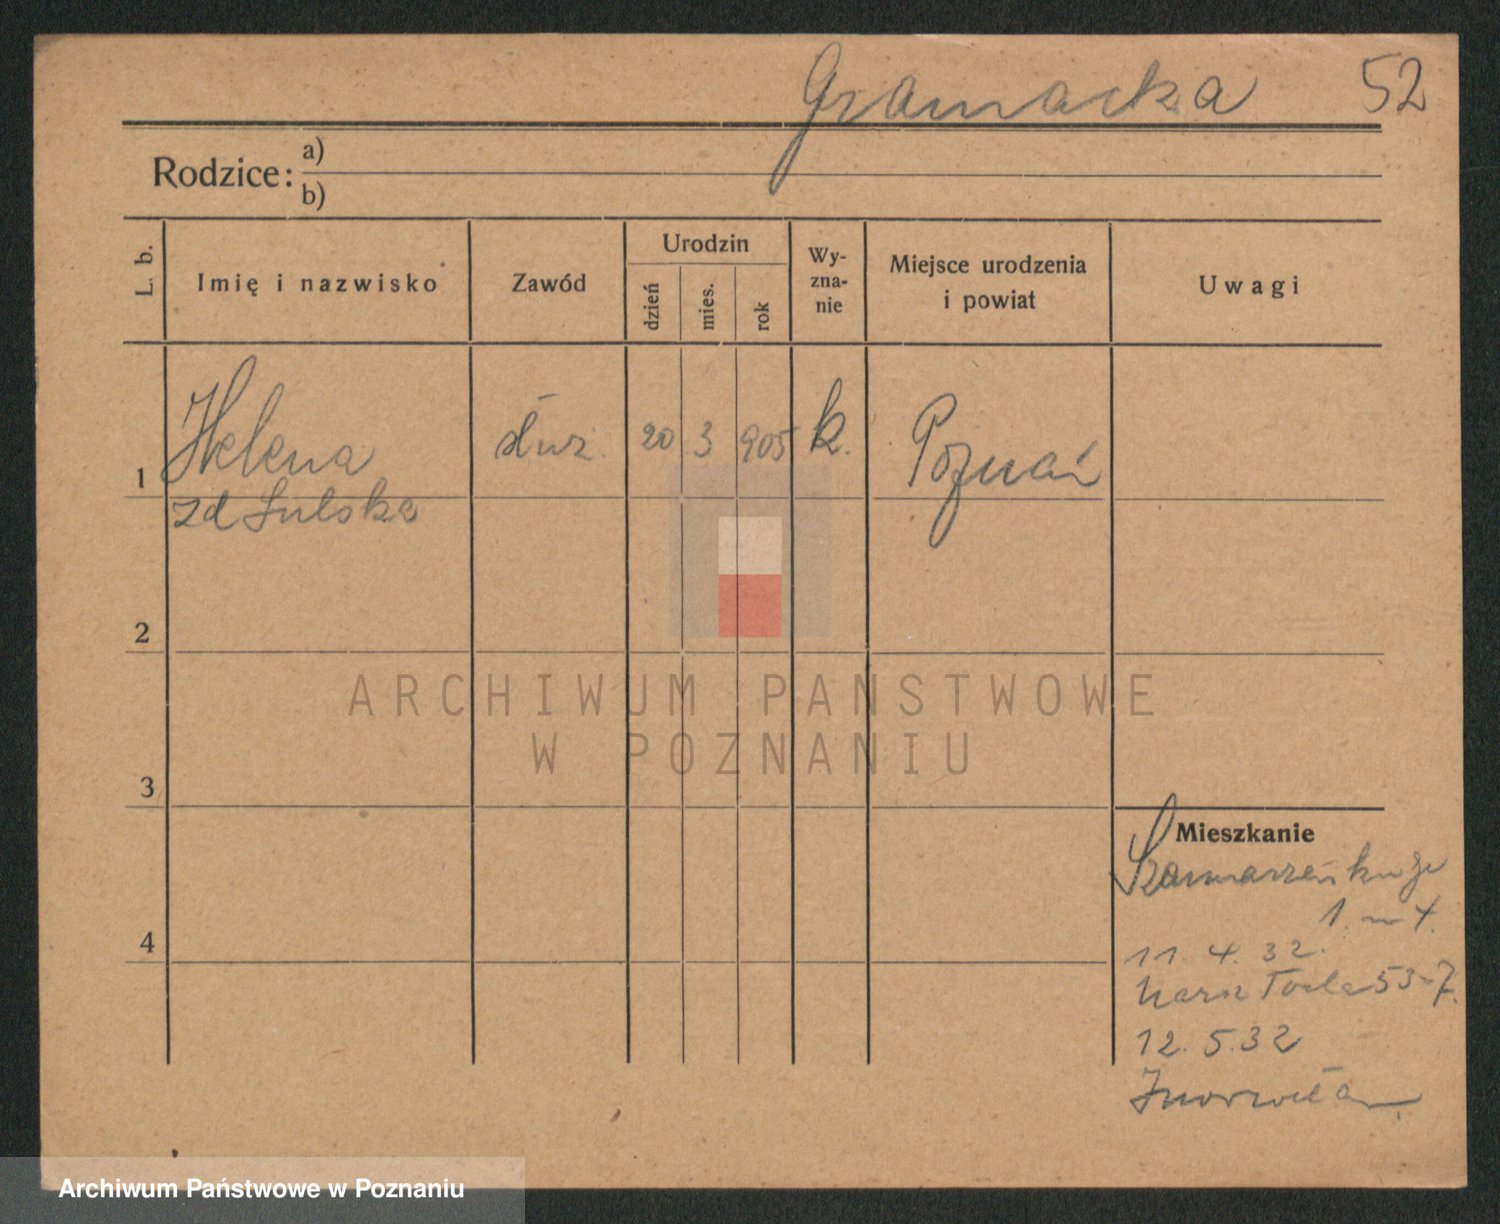 Gramacka 52
Rodzice: a)
b)
L. b.
Imię i nazwisko
Zawód
Urodzin
dzień
mies.
rok
Wy-
zna-
nie
Miejsce urodzenia
i powiat
Uwagi
1 Helena służ. 20 3 905 k. Poznań
zd Sulska
2
ARCHIWUM PANSTWOWE
W POZNANIU
3
Mieszkanie
1. m 4.
4
11. 4. 32.
53-7.
12. 5. 32
Archiwum Państwowe w Poznaniu